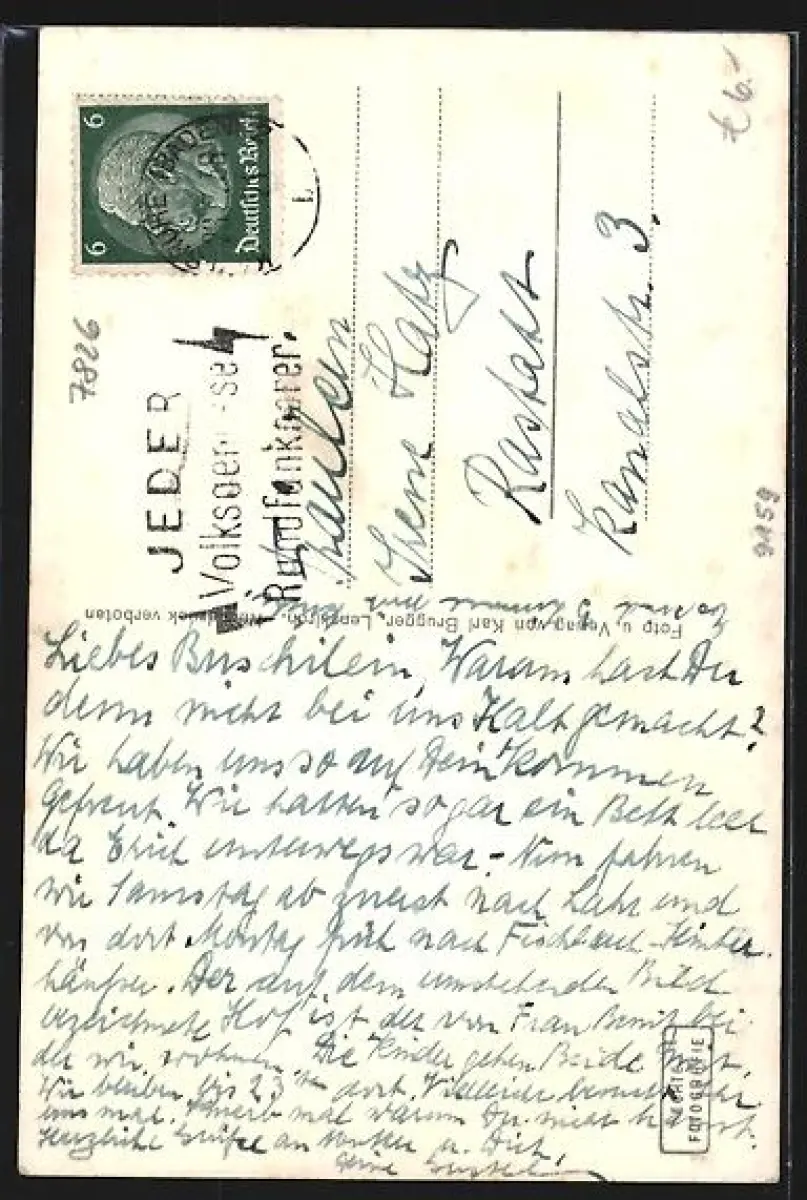 € 6.-
6 Deutsches Reich 6
7826
JEDER
Volksgenosse
Rundfunkhörer.
Fräulein
Irene Katz
Rastatt
Kanalstr. 3.
9159
Foto u. Verlag von Karl Brugger, Lenzkirch. Nachdruck verboten
Liebes Buschilein, Warum hast Du
denn nicht bei uns Halt gemacht?
Wir haben uns so auf Dein Kommen
gefreut. Wir hatten sogar ein Bett leer
da Erich unterwegs war. - Nun fahren
wir Samstag ab zuerst nach Lahr und
von dort Montag früh nach Fischbach-Hinter-
häuser. Der auf dem umstehenden Bild
bezeichnete Hof ist der von Frau bei
der wir wohnen. Die Kinder gehen Beide mit.
Wir bleiben bis 23ten dort. Vielleicht Ihr
uns mal. mal warum Du nicht kamst.
Herzliche Grüße an Mutter u. Dich,
Deine
FOTOGRAFIE